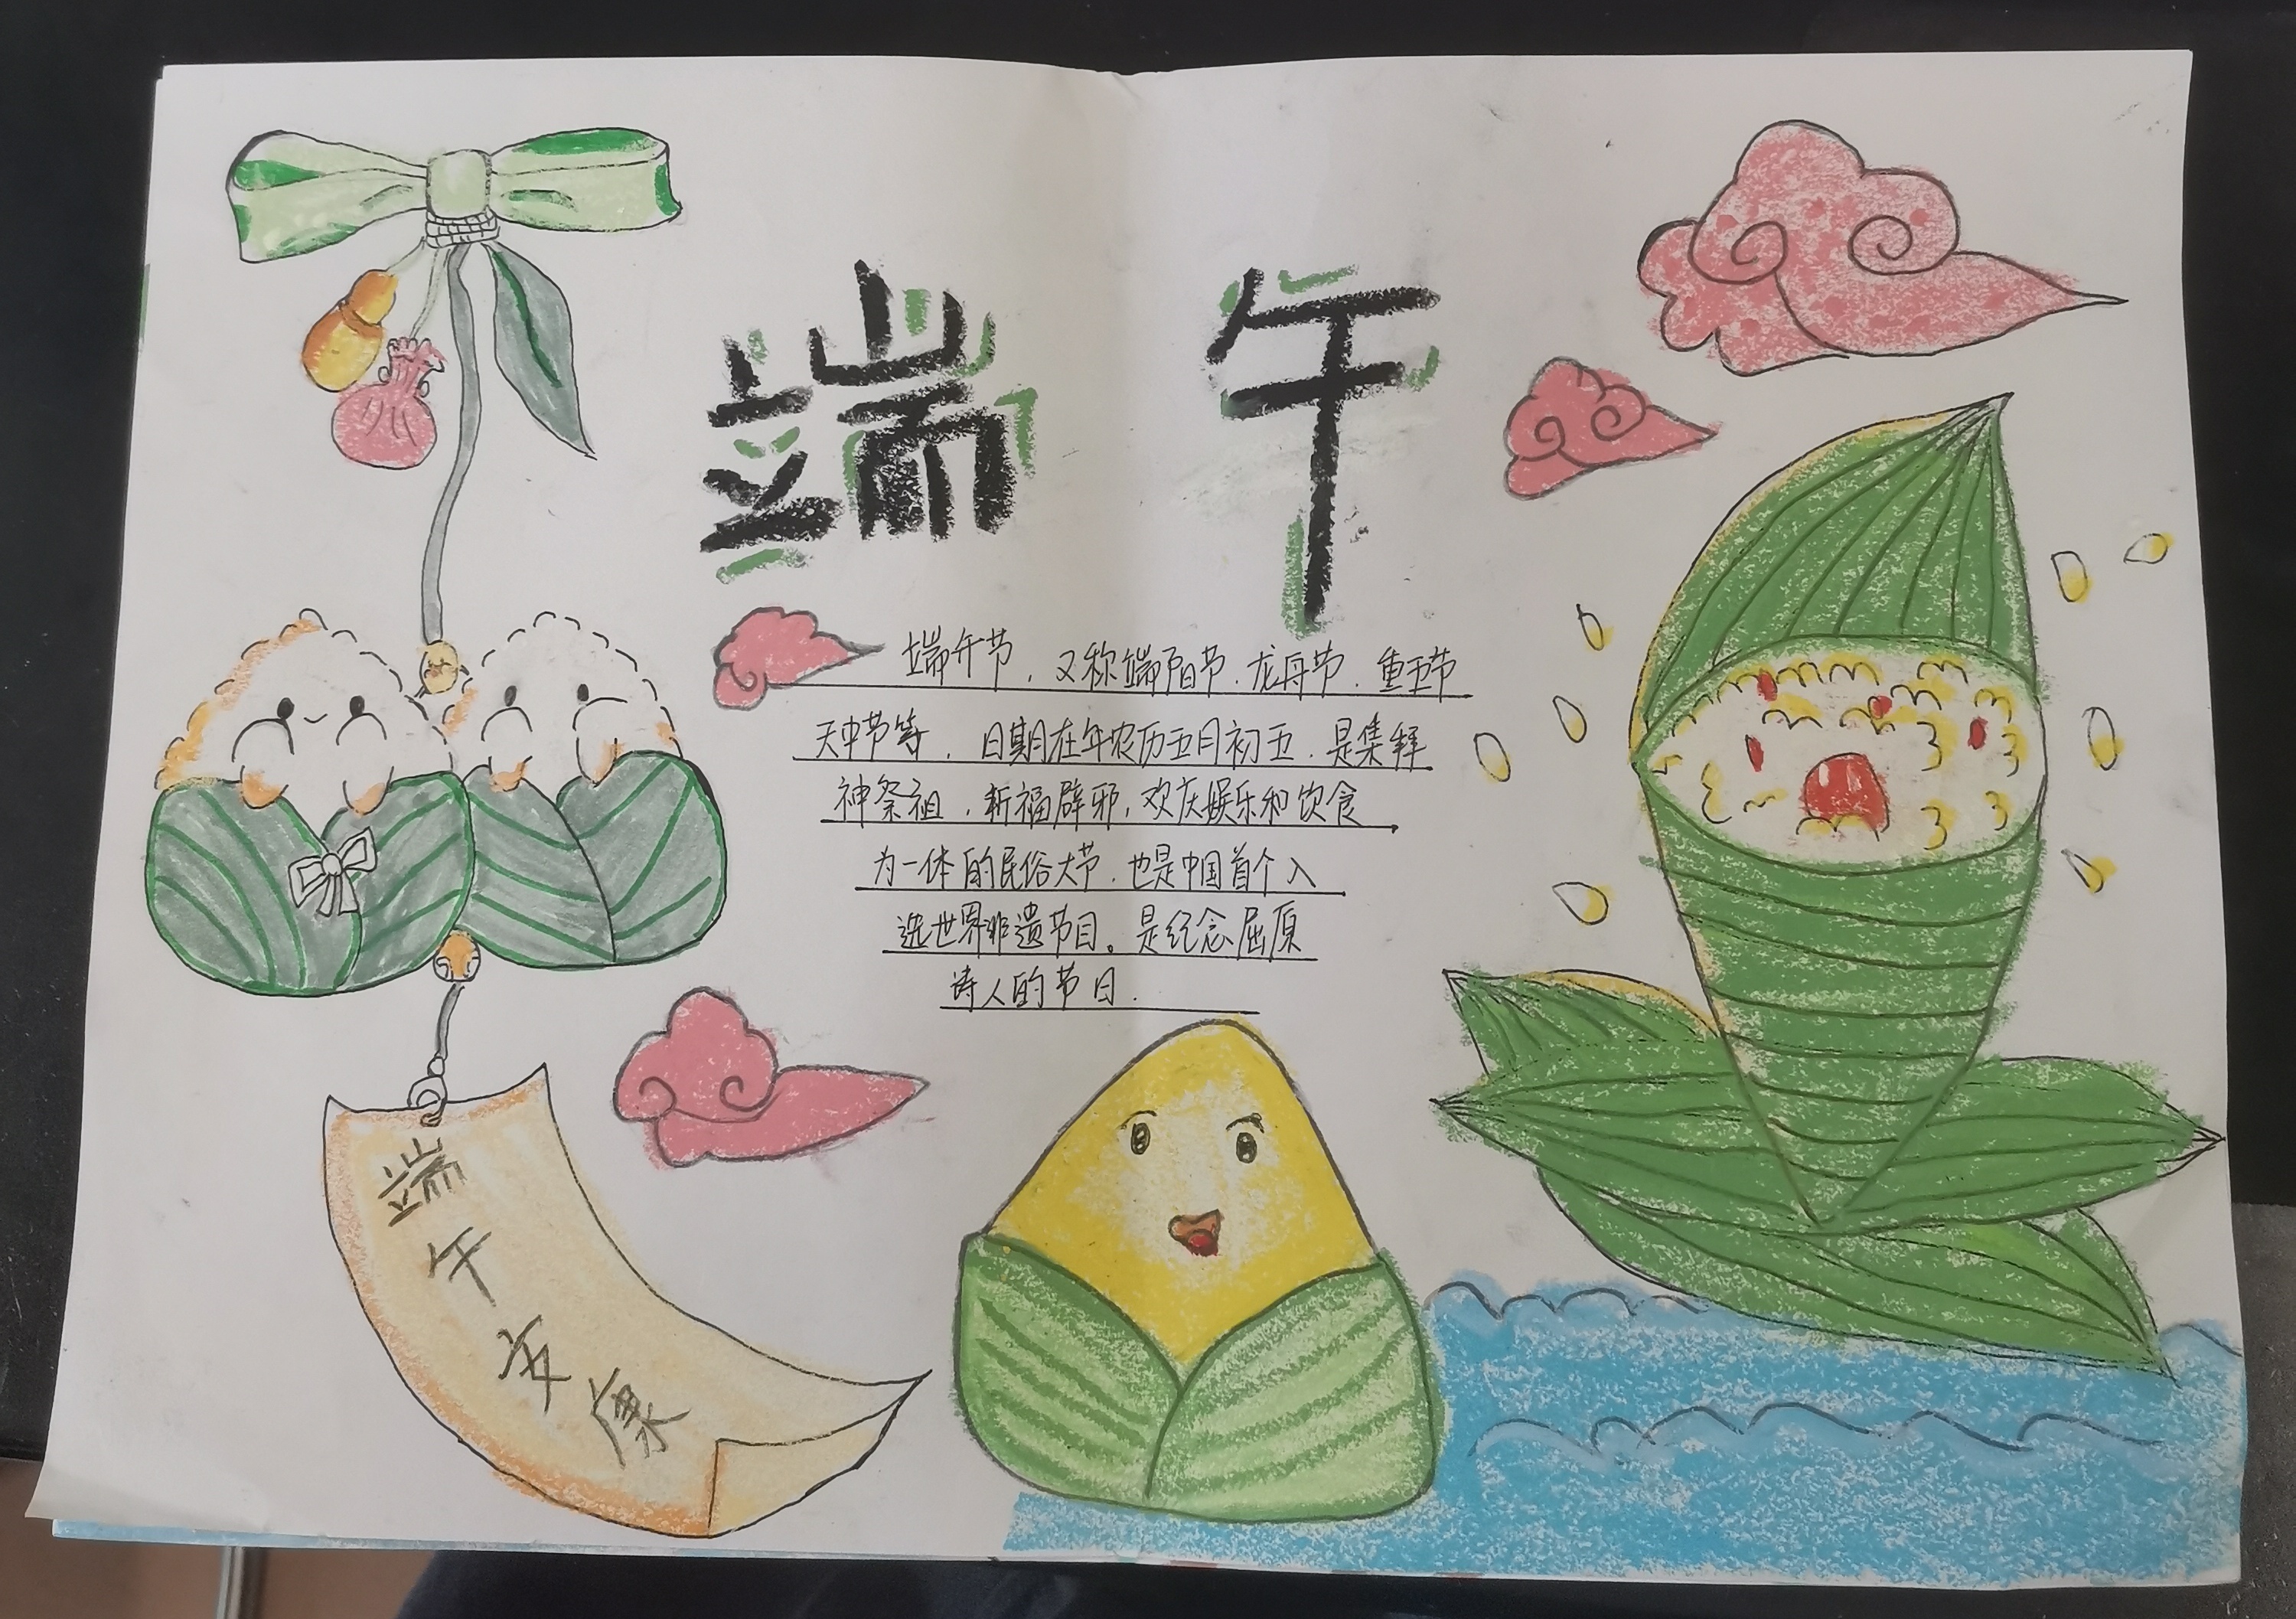 端午
端午节，又称端阳节.龙舟节.重五节
天中节等，日期在年农历五月初五.是集拜
神祭祖，祈福辟邪，欢庆娱乐和饮食
为一体的民俗大节.也是中国首个入
选世界非遗节目。是纪念屈原
诗人的节日.
端午安康